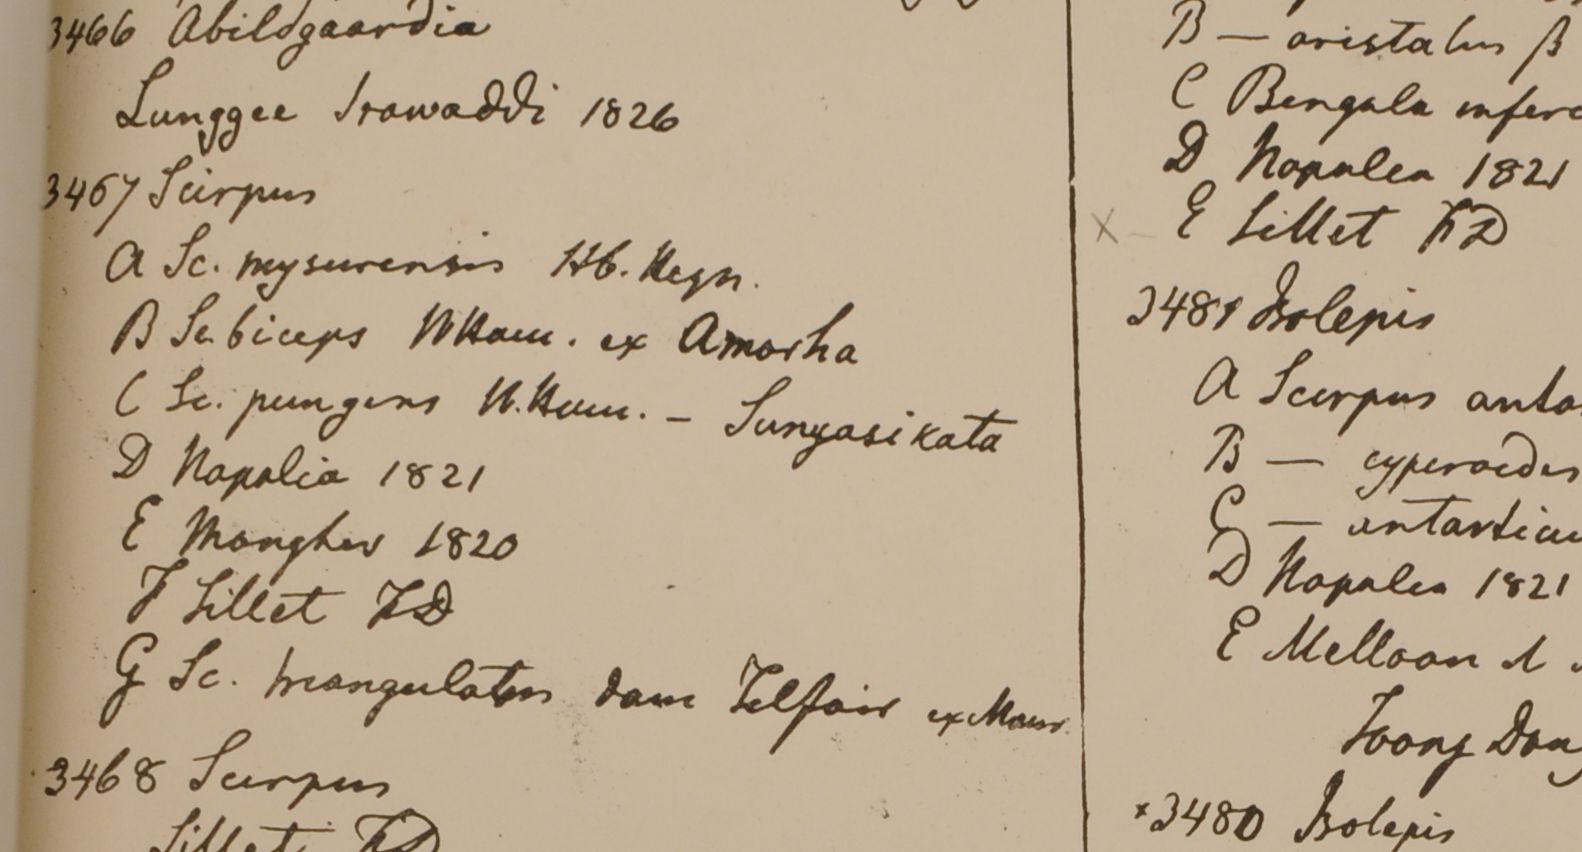 3466 Abildgaardia
Lunggee Irawaddi 1826
3467 Scirpus
A Sc. mysurensis Hb. Heyn.
B Sc. biceps HHam. ex Amorha
C Sc. pungens H.Ham. - Sungasikata
D Napalia 1821
E Monghir 1820
F Sillet FD
G Sc. triangulatus dam Telfair ex Maur
3468 Scirpus
Sillet FD
B — aristatus β
C Bengala infer
D Napalea 1821
E Sillet FD
3481 Isolepis
A Scirpus anta
B — cyperoides
C — antarticu
D Napalea 1821
E Melloon
Toong Don
3480 Isolepis